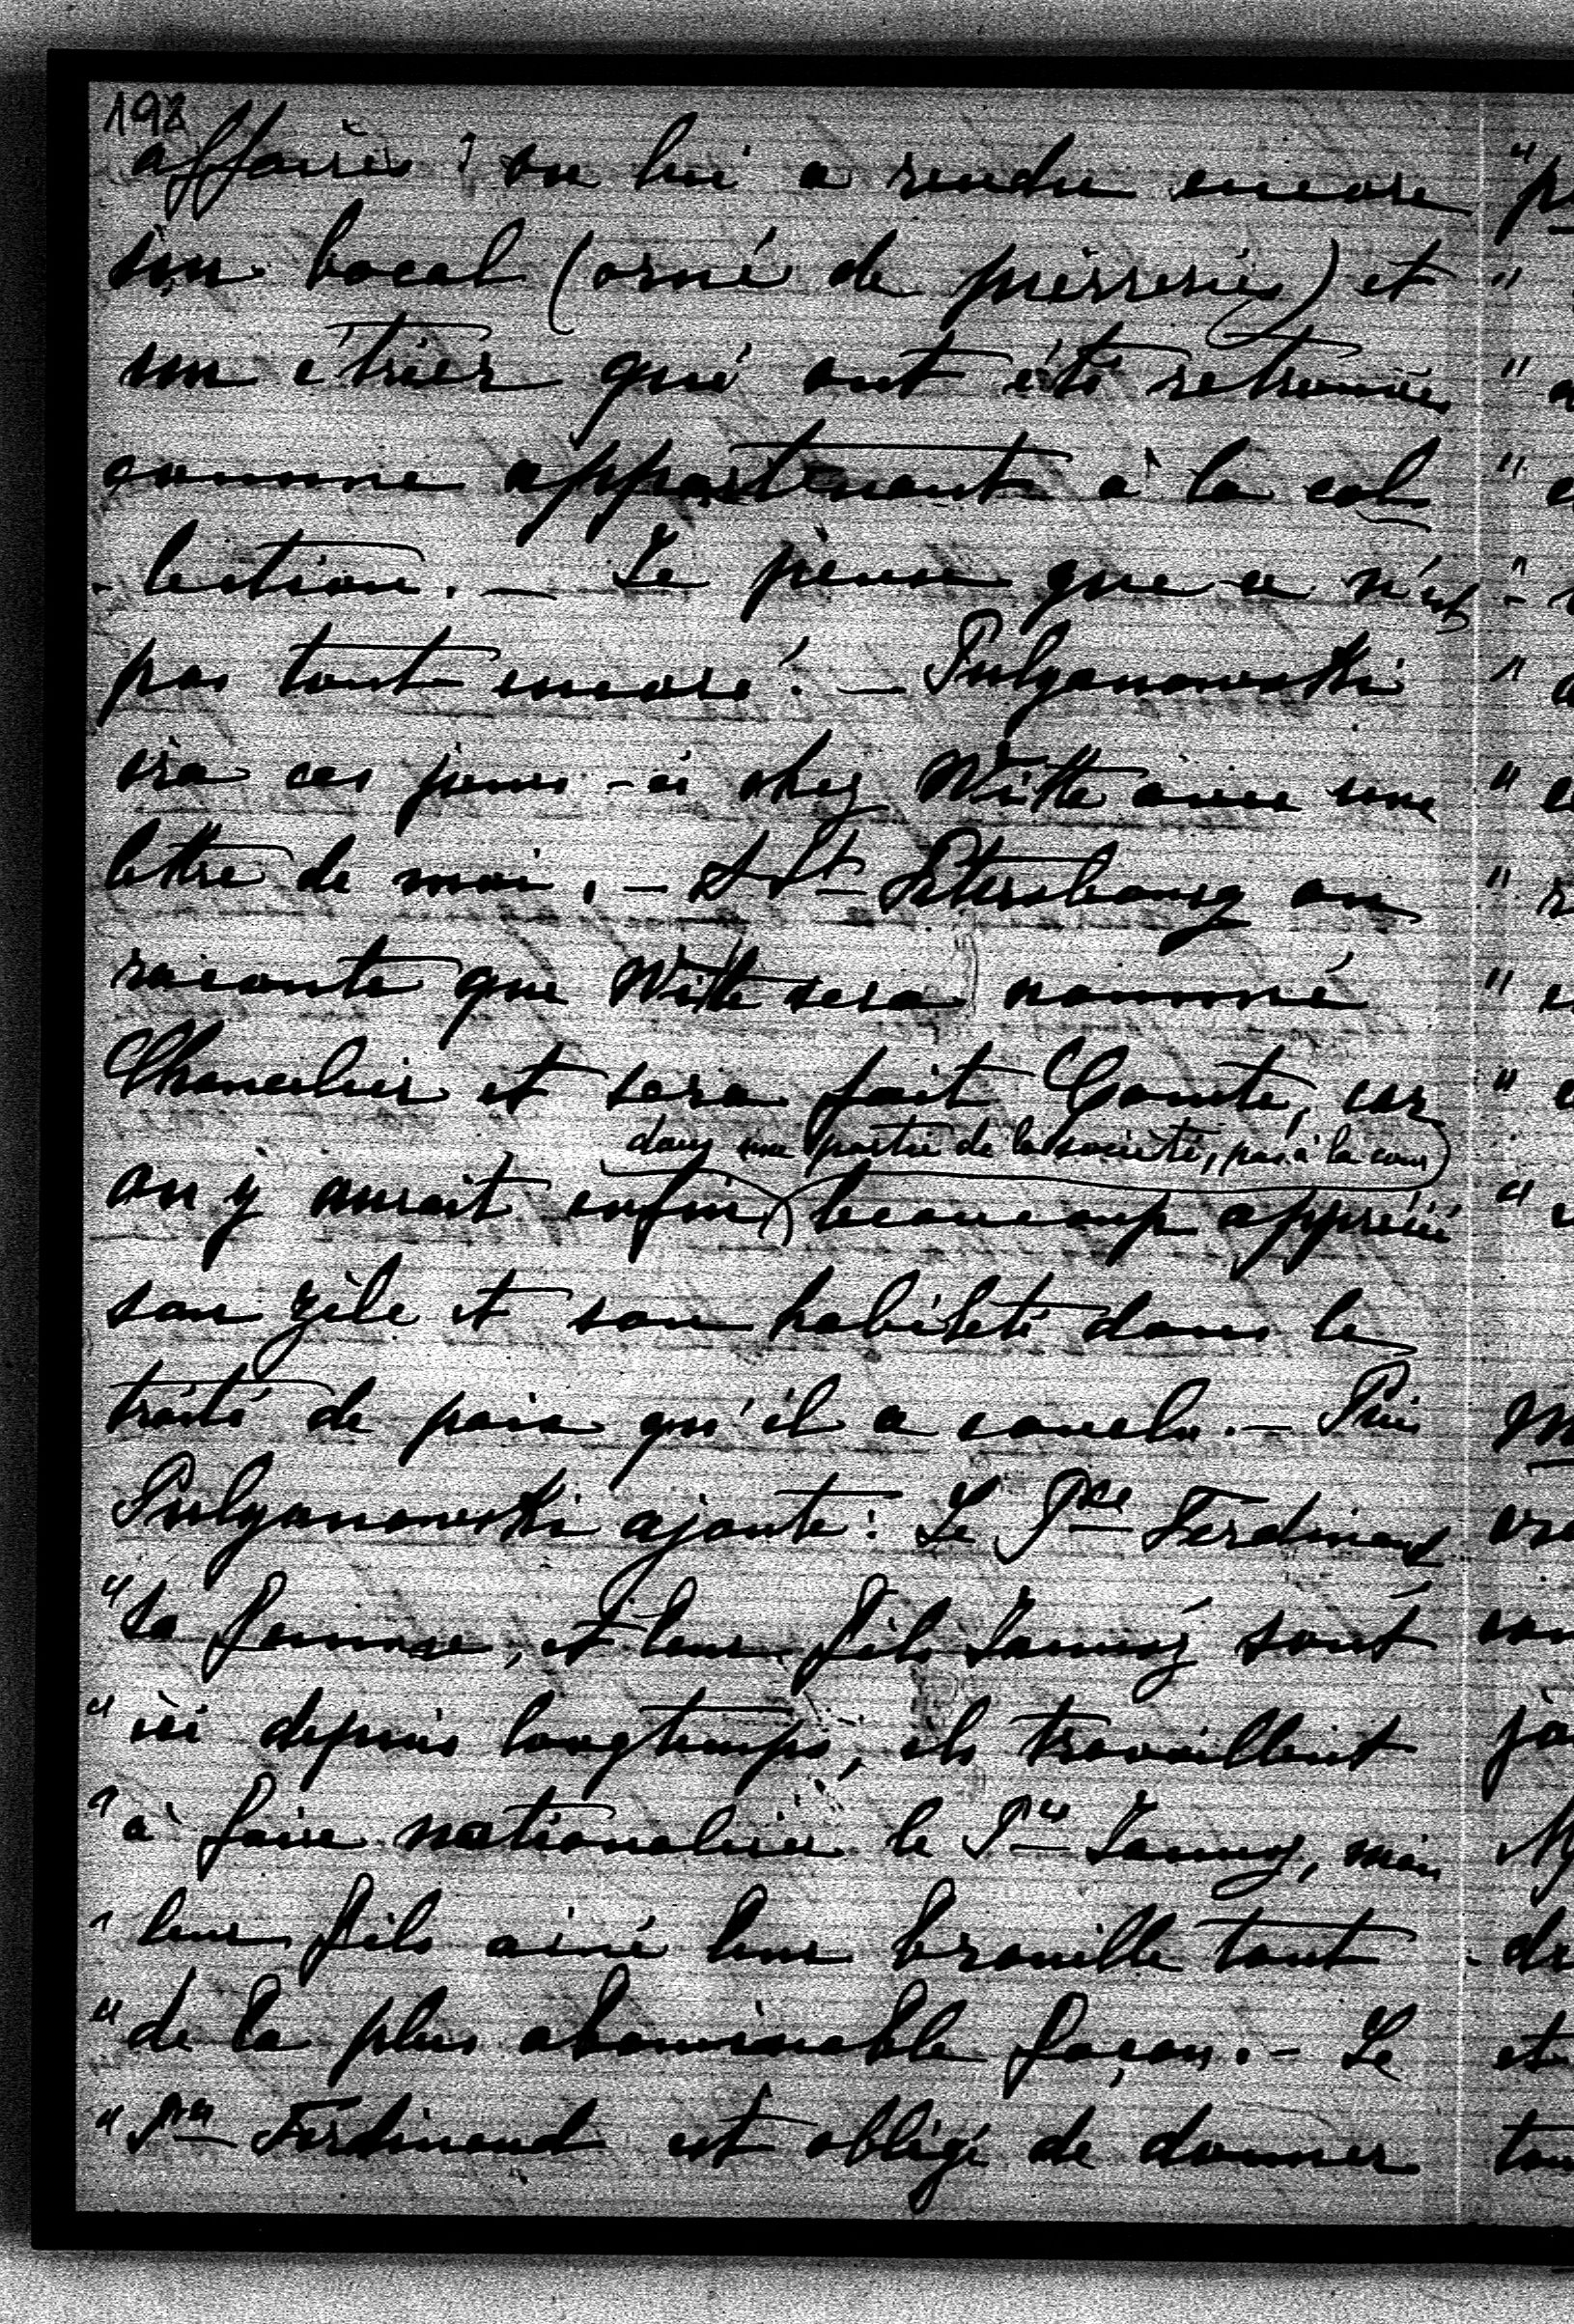 198
affaires : on lui a rendu encore
un bocal (orné de pierreries) et
un étrier qui ont été retrouvés
comme appartenant à la col
-lection. — Je pense que ce n'est
pas tout encore. — Pulyanowski
ira ces jours-ci chez Witte avec une
lettre de moi. — A St Pétersbourg on
raconte que Witte sera nommé
Chancelier et sera fait Comte, car
dans une partie de la société, pas à la cour
on y aurait enfin beaucoup apprécié
son zèle et son habileté dans le
traité de paix qu'il a conclu. — Puis
Pulyanowski ajoute : Le Pce Ferdinand
"sa femme, et leur fils Janusz sont
"ici depuis longtemps, ils travaillent
"à faire nationaliser le Pce Janusz, mais
"leur fils ainé leur brouille tout
"de la plus abominable façon. — Le
"Pce Ferdinand est obligé de donner